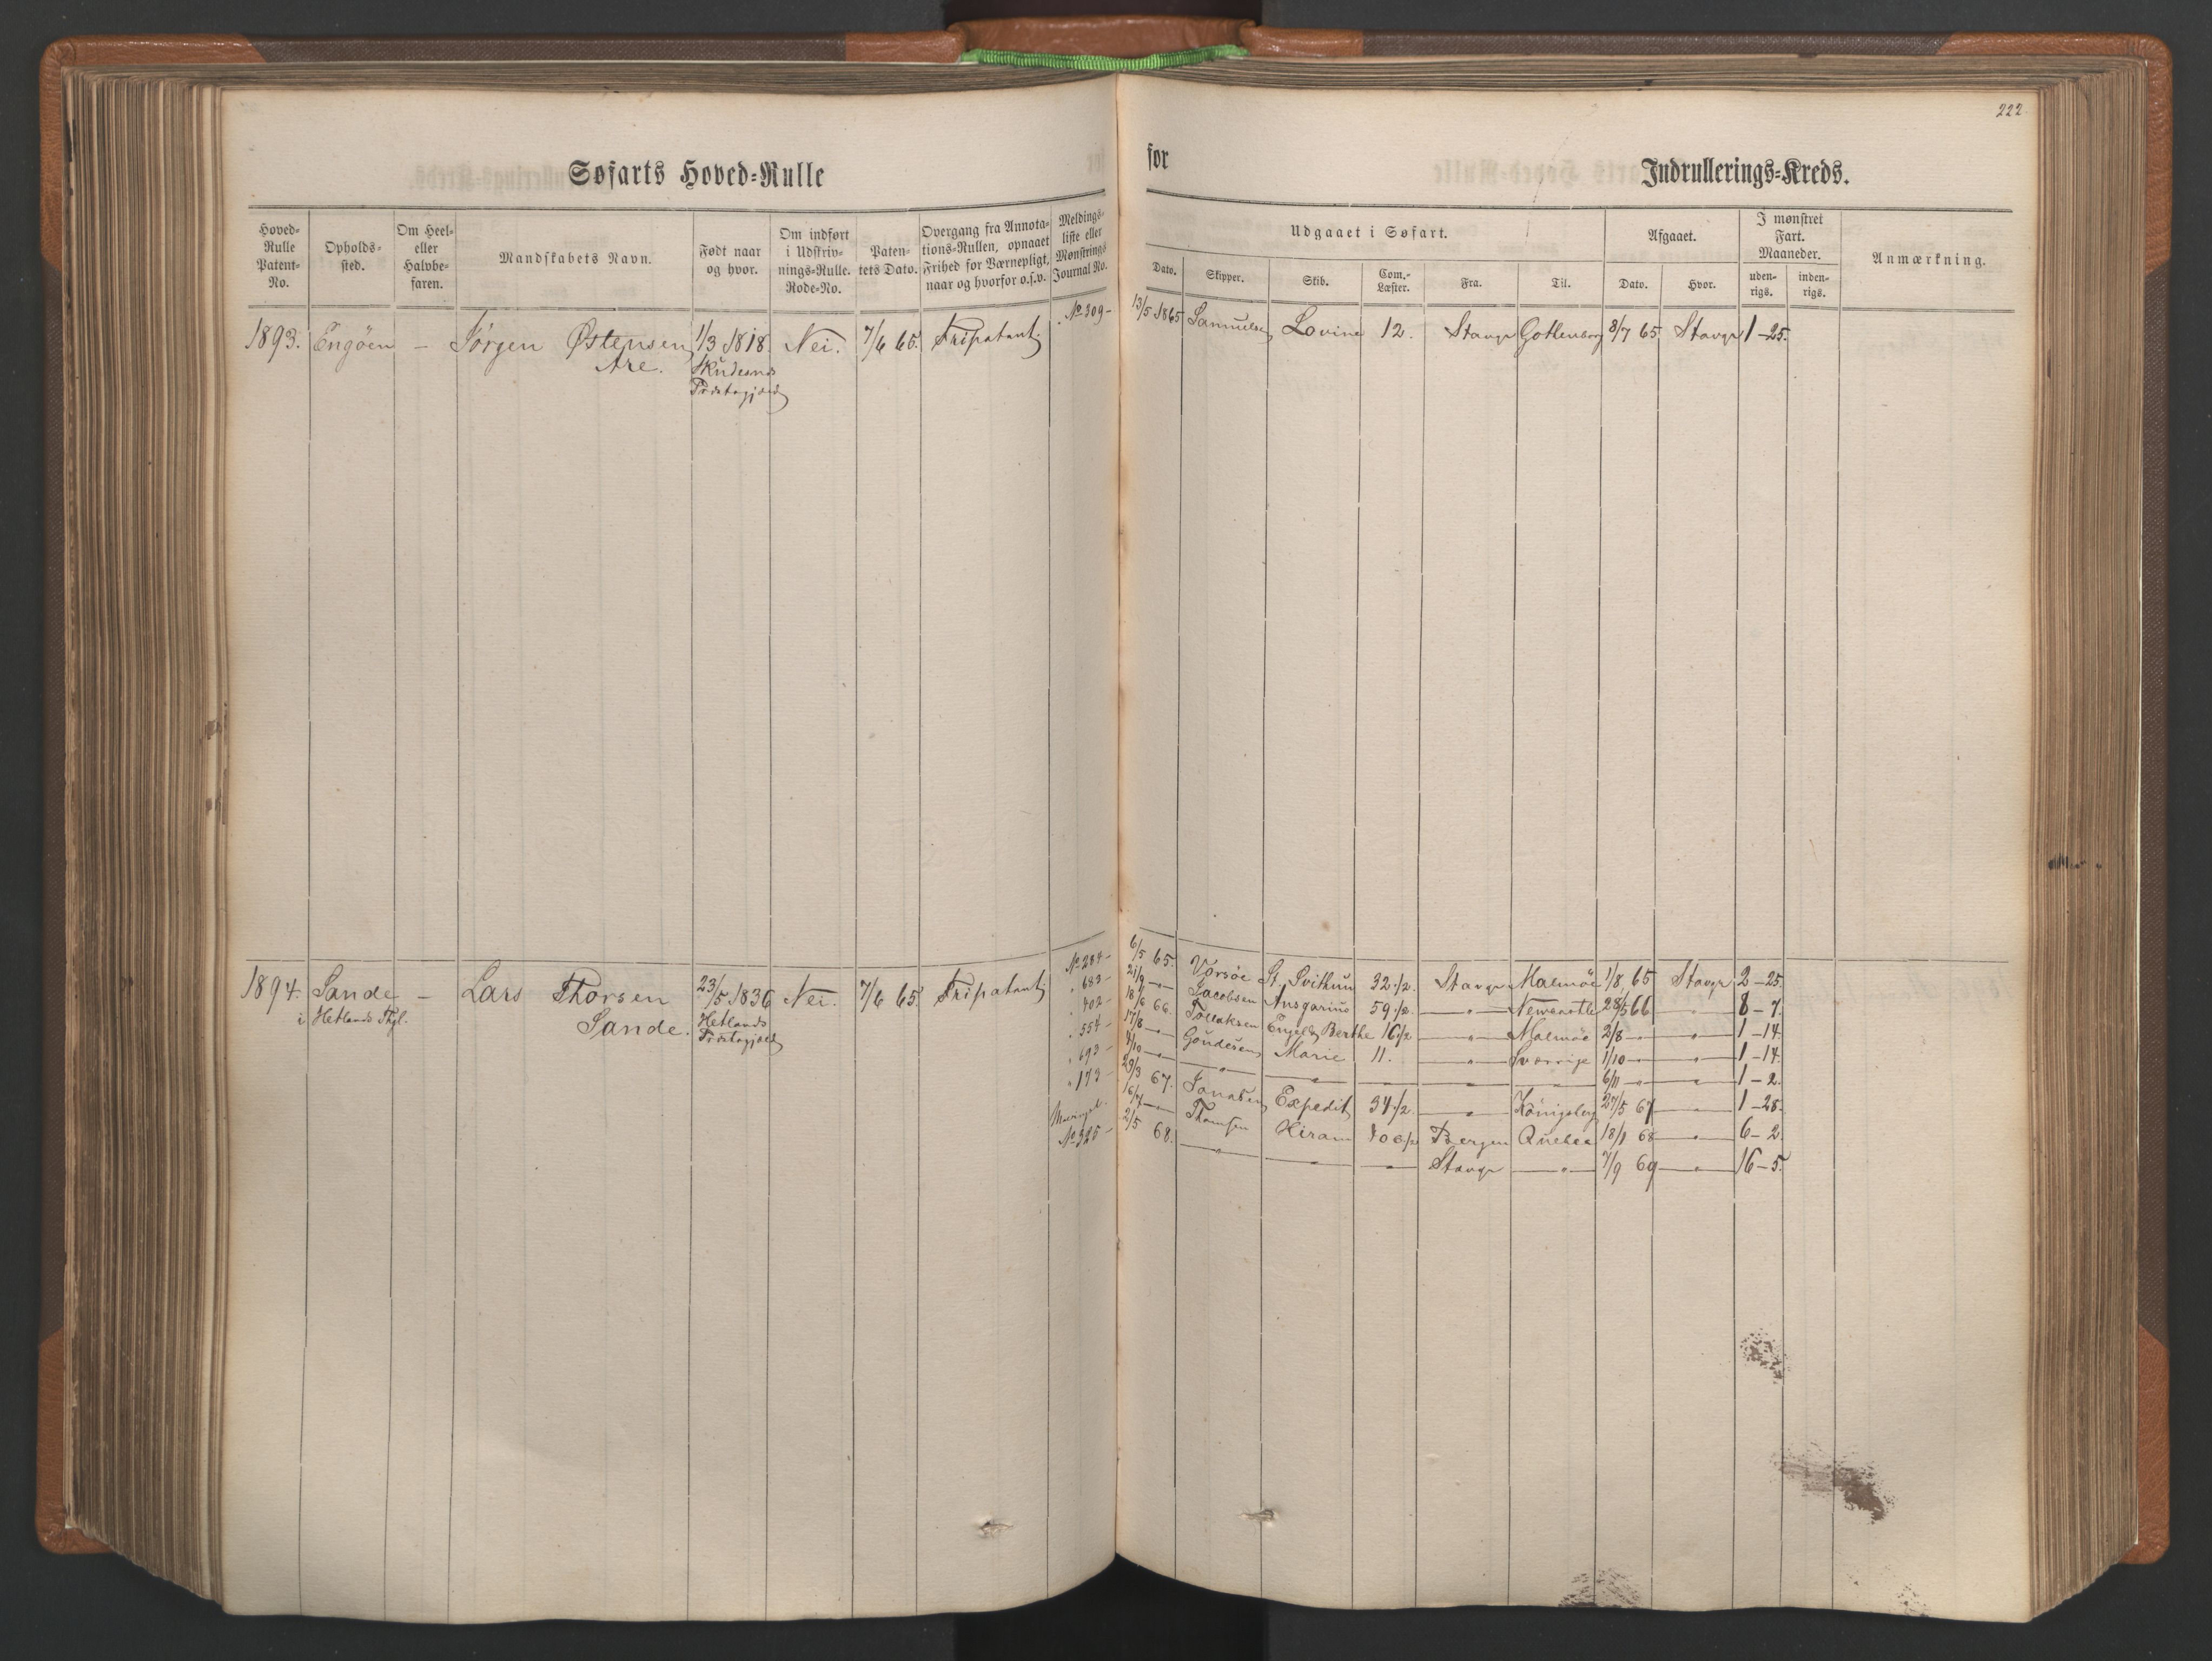 222
Søfarts Hoved-Rulle
for
Indrullerings-Kreds.
Hoved-Rulle Patent-No.
Opholds-sted.
Om Heel- eller Halvbe-faren.
Mandskabets Navn.
Født naar og hvor.
Om indført i Udskriv-nings-Rulle. Rode-No.
Paten-tets Dato.
Overgang fra Annota-tions-Rullen, opnaaet Frihed for Værnepligt, naar og hvorfor o.s.v.
Meldings-liste eller Mønstrings Journal No.
Udgaaet i Søfart.
Dato.
Skipper.
Skib.
Com.-Læster.
Fra.
Til.
Afgaaet.
Dato.
Hvor.
I mønstret Fart. Maaneder.
uden-rigs.
inden-rigs.
Anmærkning.
1893. Engöen – Jörgen Østensen 1/3 1818. Nei. 7/6 65. Fripatent No 309 – 13/5 1865 Samuelsen Lovine 12. Stavgr Gottenborg 8/7 65. Stavgr 1 – 25.
Are. Skudesnes
Præstegjæld
1894. Sande – Lars Thorsen 23/5 1836 Nei. 7/6 65. Fripatent No 284 – 6/5 65. Vorsöe St. Svithun 32 1/2. Stavgr Malmöe 1/8 65 Stavgr 2 – 25.
i Hetlands Thgl. Sande. Hetlands
Præstegjæld
" 683 – 21/9 – " – Jacobsen Ansgarius 59 1/2. – " – Newcastle 28/5 66 – " – 8 – 7.
" 402 – 18/6 66. Tollaksen Engel Berthe 16 1/2 – " – Malmöe 2/8 – " – – " – 1 – 14.
" 554 – 17/8 – " – Goudesen Marie 11. – " – Sverrige 1/10 – " – – " – 1 – 14.
" 693 – 4/10 – " – – " – – " – – " – 6/11 – " – – " – 1 – 2.
" 173 – 29/3 67. Jonasen Expedit 34 1/2. – " – Königsberg 27/5 67 – " – 1 – 28.
16/7 – " – Thomsen Hiram Bergen Quebec 18/1 68 – " – 6 – 2.
No 325 – 2/5 68. – " – – " – – " – Stavgr – " – 7/9 69 – " – 16 – 5.